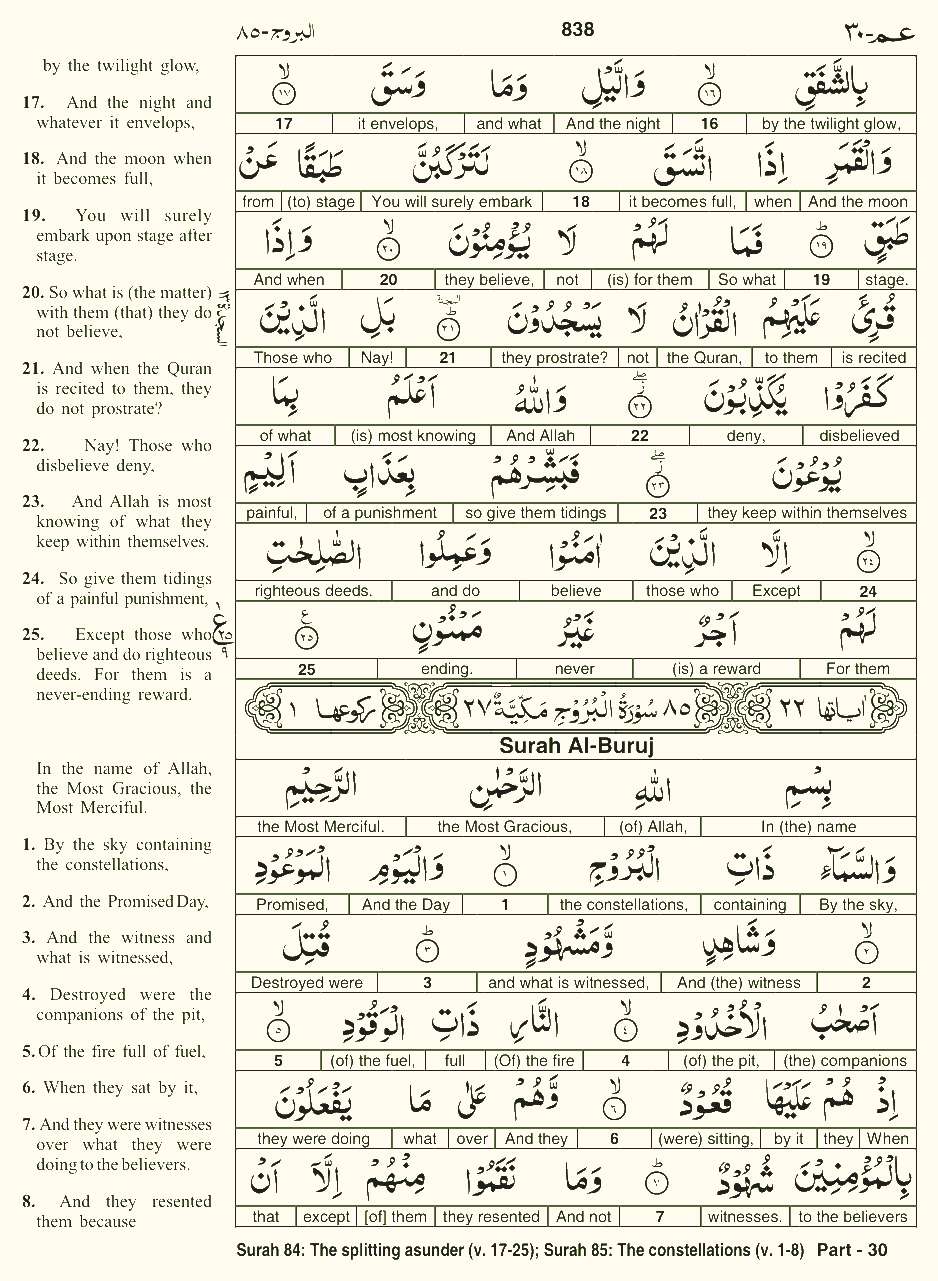 البروج-٨٥ 838 عـم-٣٠
by the twilight glow,
17. And the night and
whatever it envelops,
18. And the moon when
it becomes full,
19. You will surely
embark upon stage after
stage.
20. So what is (the matter)
with them (that) they do
not believe,
21. And when the Quran
is recited to them, they
do not prostrate?
22. Nay! Those who
disbelieve deny,
23. And Allah is most
knowing of what they
keep within themselves.
24. So give them tidings
of a painful punishment,
25. Except those who
believe and do righteous
deeds. For them is a
never-ending reward.
In the name of Allah,
the Most Gracious, the
Most Merciful.
1. By the sky containing
the constellations,
2. And the Promised Day,
3. And the witness and
what is witnessed,
4. Destroyed were the
companions of the pit,
5. Of the fire full of fuel,
6. When they sat by it,
7. And they were witnesses
over what they were
doing to the believers.
8. And they resented
them because
بِالشَّفَقِ ۙ‏ ١٦ وَالَّيْلِ وَمَا وَسَقَ ۙ‏ ١٧
17 it envelops, and what And the night 16 by the twilight glow,
وَالْقَمَرِ اِذَا اتَّسَقَ ۙ‏ ١٨ لَتَرْكَبُنَّ طَبَقًا عَنْ
from (to) stage You will surely embark 18 it becomes full, when And the moon
طَبَقٍ ؕ‏ ١٩ فَمَا لَهُمْ لَا يُؤْمِنُوْنَ ۙ‏ ٢٠ وَاِذَا
And when 20 they believe, not (is) for them So what 19 stage.
قُرِئَ عَلَيْهِمُ الْقُرْاٰنُ لَا يَسْجُدُوْنَ ؕ‏ ٢١ بَلِ الَّذِيْنَ
السجدة ١٣
Those who Nay! 21 they prostrate? not the Quran, to them is recited
كَفَرُوْا يُكَذِّبُوْنَ ۖ‏ ٢٢ وَاللّٰهُ اَعْلَمُ بِمَا
of what (is) most knowing And Allah 22 deny, disbelieved
يُوْعُوْنَ ۖ‏ ٢٣ فَبَشِّرْهُمْ بِعَذَابٍ اَلِيْمٍ
painful, of a punishment so give them tidings 23 they keep within themselves
ۙ‏ ٢٤ اِلَّا الَّذِيْنَ اٰمَنُوْا وَعَمِلُوا الصّٰلِحٰتِ
righteous deeds. and do believe those who Except 24
لَهُمْ اَجْرٌ غَيْرُ مَمْنُوْنٍ ٢٥ ع
١ ع ٢٥ ٩
25 ending. never (is) a reward For them
اٰياتها ٢٢ ٨٥ سُوْرَةُ الْبُرُوْجِ مَكِّيَّةٌ ٢٧ ركوعها ١
Surah Al-Buruj
بِسْمِ اللّٰهِ الرَّحْمٰنِ الرَّحِيْمِ
the Most Merciful. the Most Gracious, (of) Allah, In (the) name
وَالسَّمَآءِ ذَاتِ الْبُرُوْجِ ۙ‏ ١ وَالْيَوْمِ الْمَوْعُوْدِ
Promised, And the Day 1 the constellations, containing By the sky,
ۙ‏ ٢ وَشَاهِدٍ وَّمَشْهُوْدٍ ؕ‏ ٣ قُتِلَ
Destroyed were 3 and what is witnessed, And (the) witness 2
اَصْحٰبُ الْاُخْدُوْدِ ۙ‏ ٤ النَّارِ ذَاتِ الْوَقُوْدِ ۙ‏ ٥
5 (of) the fuel, full (Of) the fire 4 (of) the pit, (the) companions
اِذْ هُمْ عَلَيْهَا قُعُوْدٌ ۙ‏ ٦ وَّهُمْ عَلٰى مَا يَفْعَلُوْنَ
they were doing what over And they 6 (were) sitting, by it they When
بِالْمُؤْمِنِيْنَ شُهُوْدٌ ؕ‏ ٧ وَمَا نَقَمُوْا مِنْهُمْ اِلَّاۤ اَنْ
that except [of] them they resented And not 7 witnesses. to the believers
Surah 84: The splitting asunder (v. 17-25); Surah 85: The constellations (v. 1-8) Part - 30